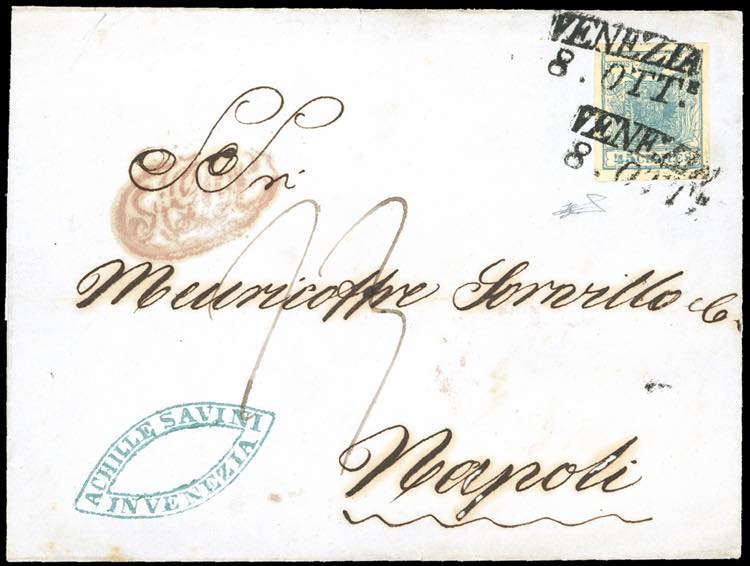 VENEZIA
8. OTT.
VENEZIA
8. OTT.
SSri
Meuricoffre Sorvillo & C.
Napoli
ACHILLE SAVINI
IN VENEZIA